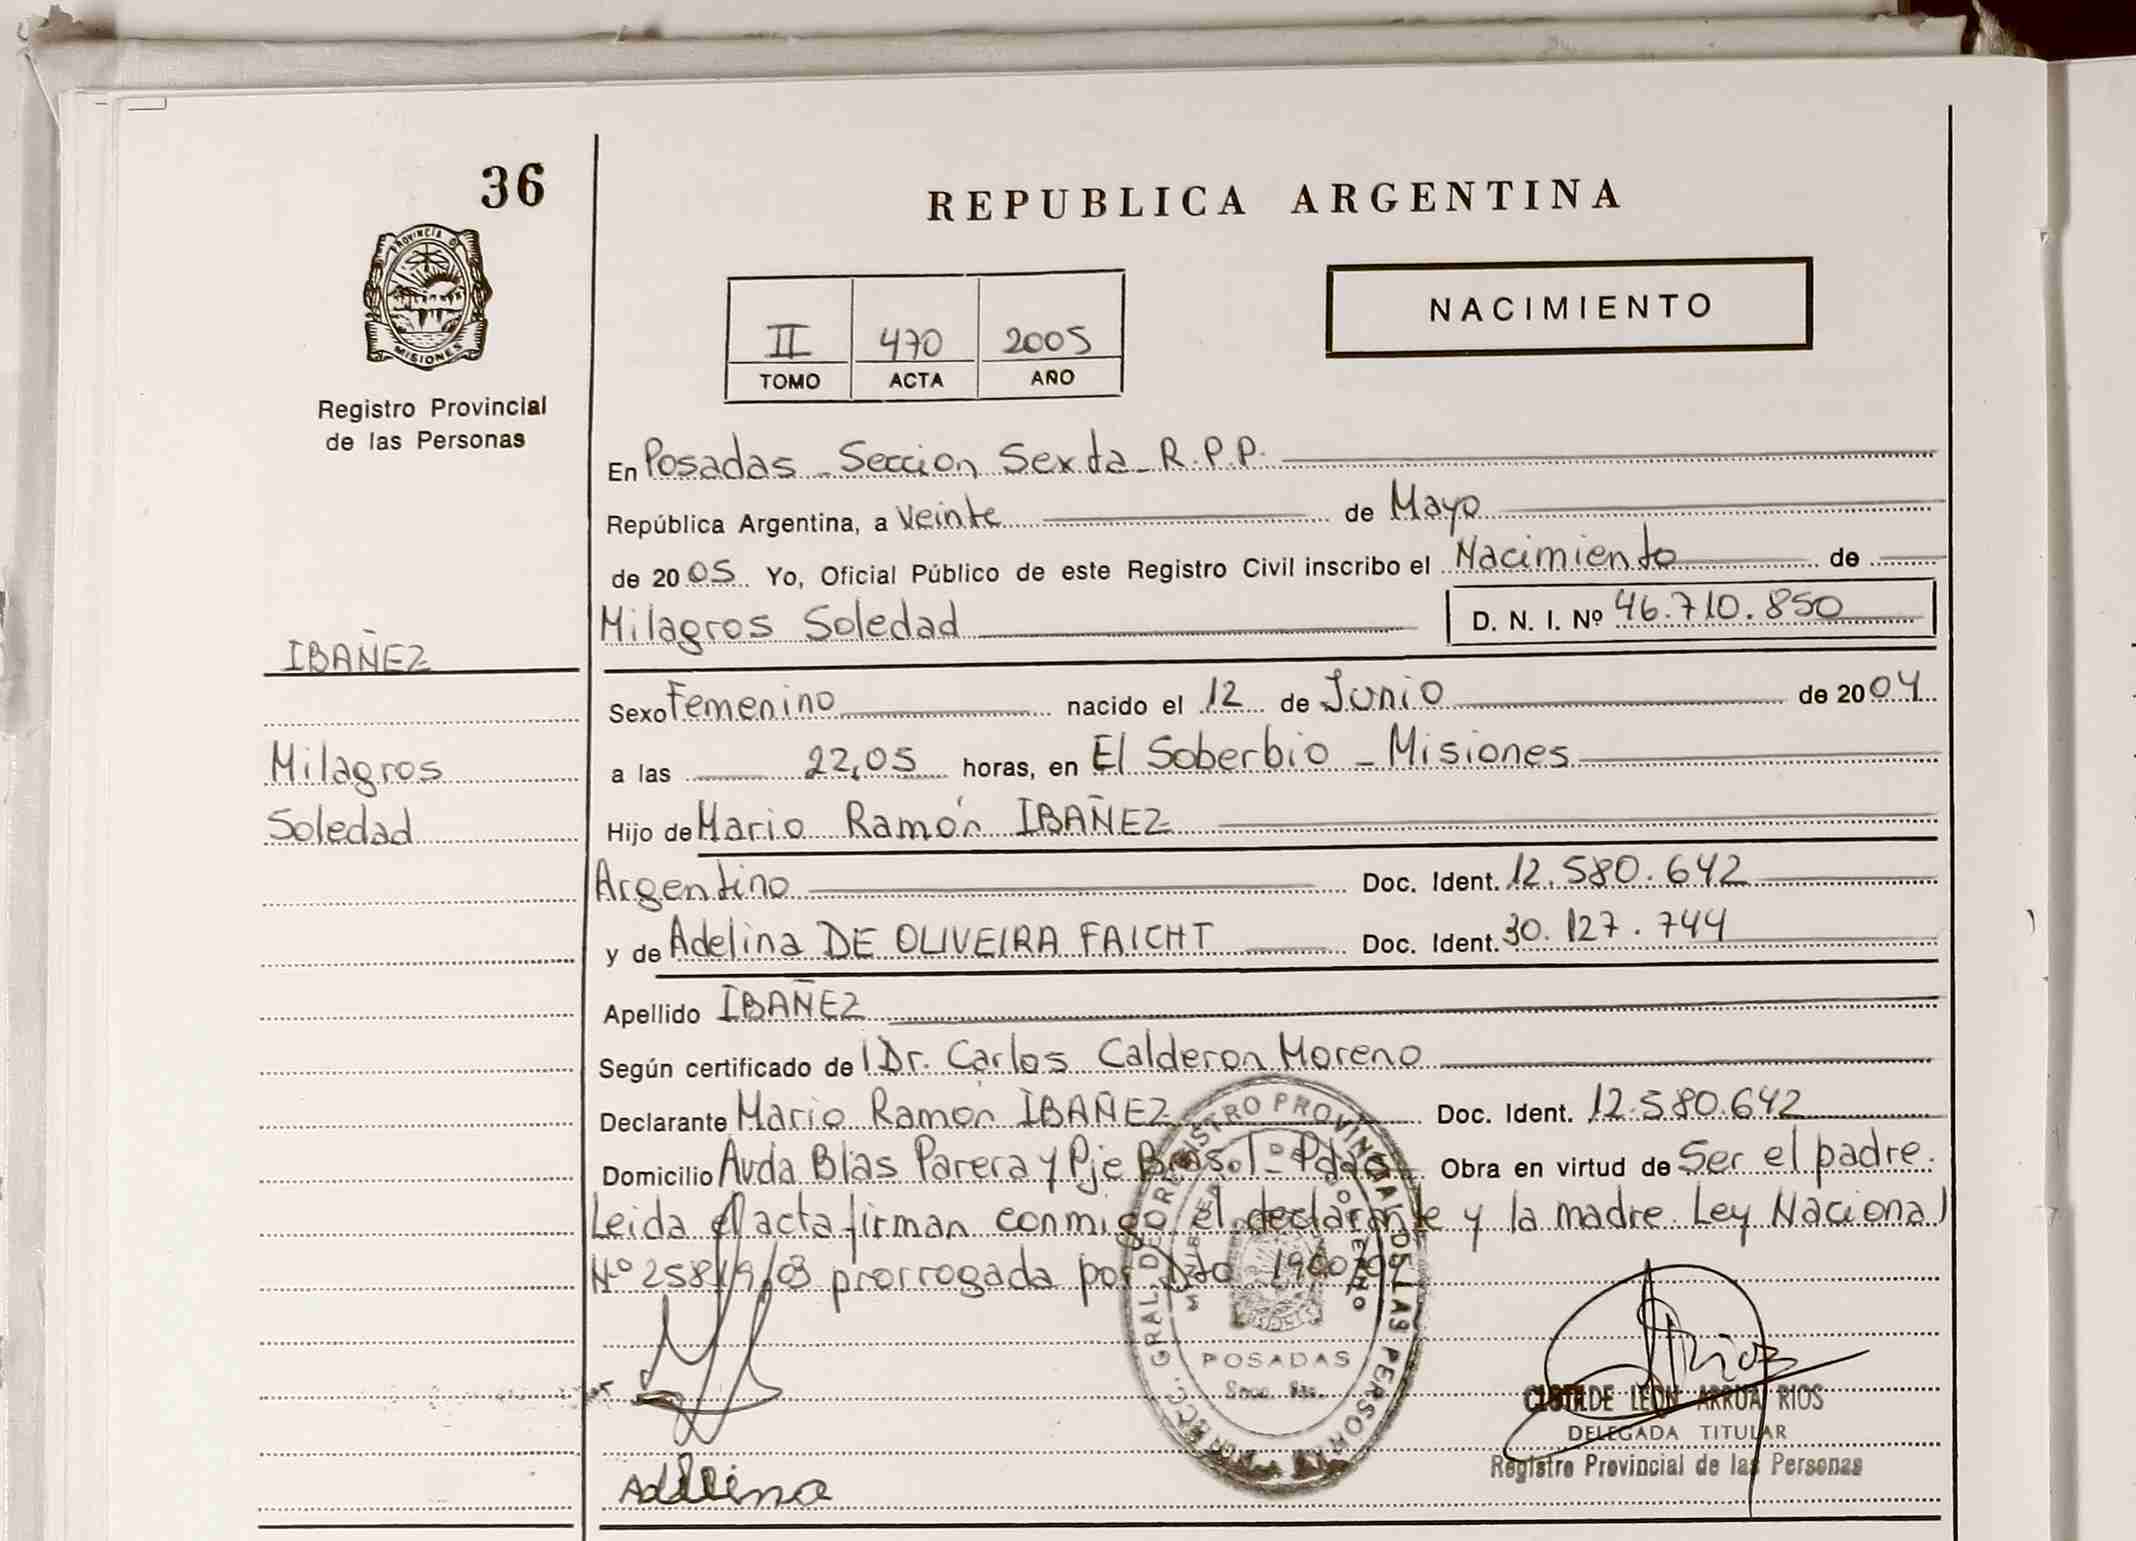 36
REPUBLICA ARGENTINA
PROVINCIA DE
MISIONES
Registro Provincial
de las Personas
II 470 2005
TOMO ACTA AÑO
NACIMIENTO
En Posadas - Seccion Sexta - R.P.P.
República Argentina, a Veinte de Mayo
de 2005 Yo, Oficial Público de este Registro Civil inscribo el Nacimiento de
Milagros Soledad D. N. I. Nº 46.710.850
IBAÑEZ
Milagros
Soledad
Sexo Femenino nacido el 12 de Junio de 2004
a las 22,05 horas, en El Soberbio - Misiones
Hijo de Mario Ramón IBAÑEZ
Argentino Doc. Ident. 12.580.642
y de Adelina DE OLIVEIRA FAICHT Doc. Ident. 30.127.744
Apellido IBAÑEZ
Según certificado de Dr. Carlos Calderon Moreno
Declarante Mario Ramón IBAÑEZ Doc. Ident. 12.580.642
Domicilio Avda Blas Parera y Pje Brasil - Pdas Obra en virtud de Ser el padre.
Leida el acta firman conmigo el declarante y la madre. Ley Nacional
Nº 25819/03 prorrogada por Dto
POSADAS
Adelina
Rios
LEON ARRUA RIOS
DELEGADA TITULAR
Registro Provincial de las Personas